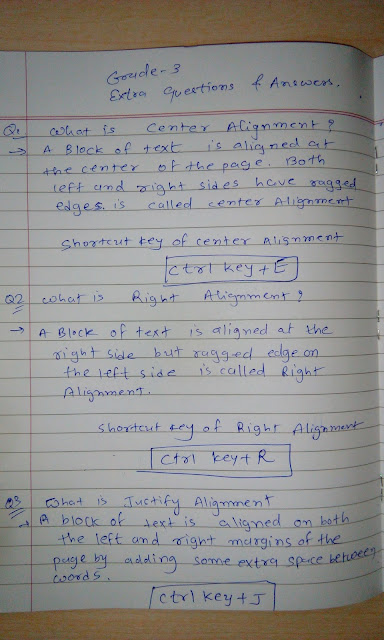 Grade-3
Extra Questions & Answers.
Q1 What is Center Alignment?
→ A Block of text is aligned at
the center of the page. Both
left and right sides have ragged
edges. is called center Alignment
Shortcut key of center Alignment
Ctrl key + E
Q2 What is Right Alignment?
→ A Block of text is aligned at the
right side but ragged edge on
the left side is called Right
Alignment.
Shortcut key of Right Alignment
Ctrl key + R
Q3 What is Justify Alignment
→ A block of text is aligned on both
the left and right margins of the
page by adding some extra space between
words.
Ctrl key + J